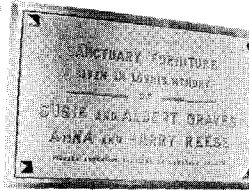 SANCTUARY FURNITURE
GIVEN IN LOVING MEMORY
OF
SUSIE AND ALBERT GRAVES
ANNA AND HARRY REESE